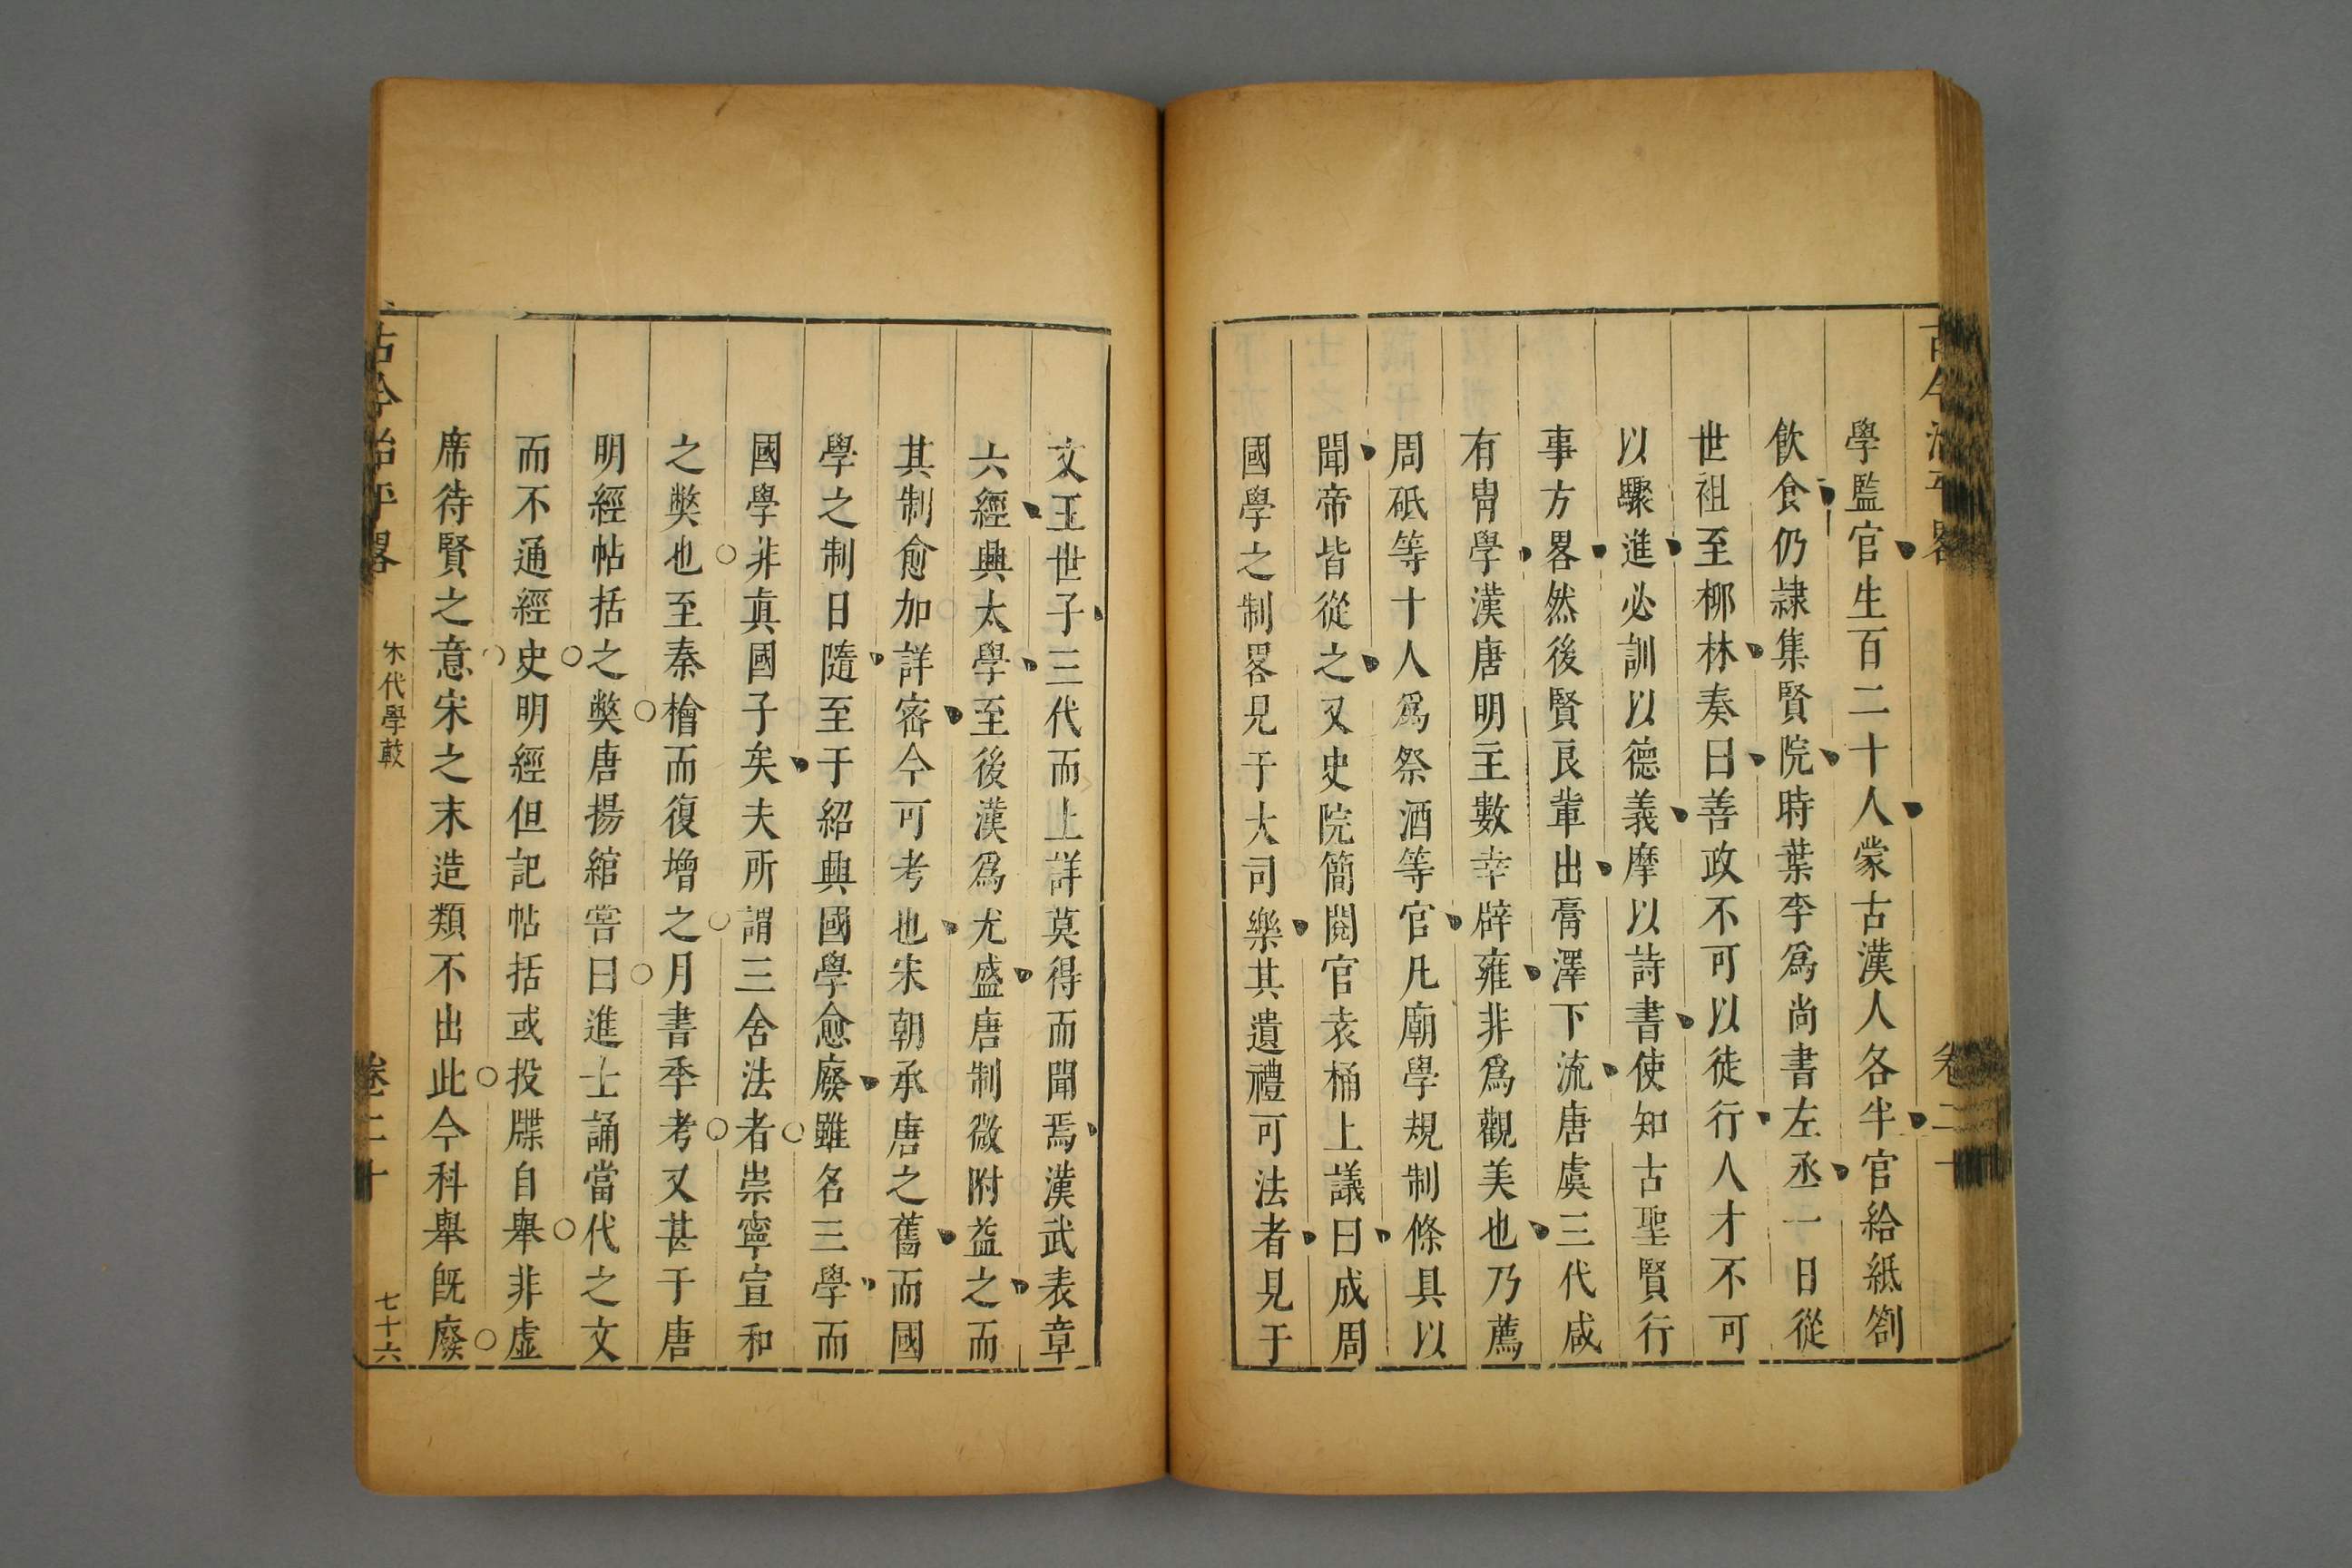 學監官生百二十人蒙古漢人各半官給紙劄
飲食仍隷集賢院時葉李爲尚書左丞一日從
世祖至柳林奏曰善政不可以徒行人才不可
以驟進必訓以德義摩以詩書使知古聖賢行
事方畧然後賢良軰出膏澤下流唐虞三代咸
有胄學漢唐明主數幸辟雍非爲觀美也乃薦
周砥等十人爲祭酒等官凡廟學規制條具以
聞帝皆從之又史院簡閱官袁桷上議曰成周
國學之制畧見于大司樂其遺禮可法者見于
文王世子三代而上詳莫得而聞焉漢武表章
六經興太學至後漢爲尤盛唐制微附益之而
其制愈加詳密今可考也宋朝承唐之舊而國
學之制日隨至于紹興國學愈廢雖名三學而
國學非眞國子矣夫所謂三舍法者崇寧宣和
之獘也至秦檜而復增之月書季考又甚于唐
明經帖括之獘唐揚綰嘗曰進士誦當代之文
而不通經史明經但記帖括或投牒自舉非虛
席待賢之意宋之末造類不出此今科舉旣廢
古今治平畧
代學
卷二十
七十六